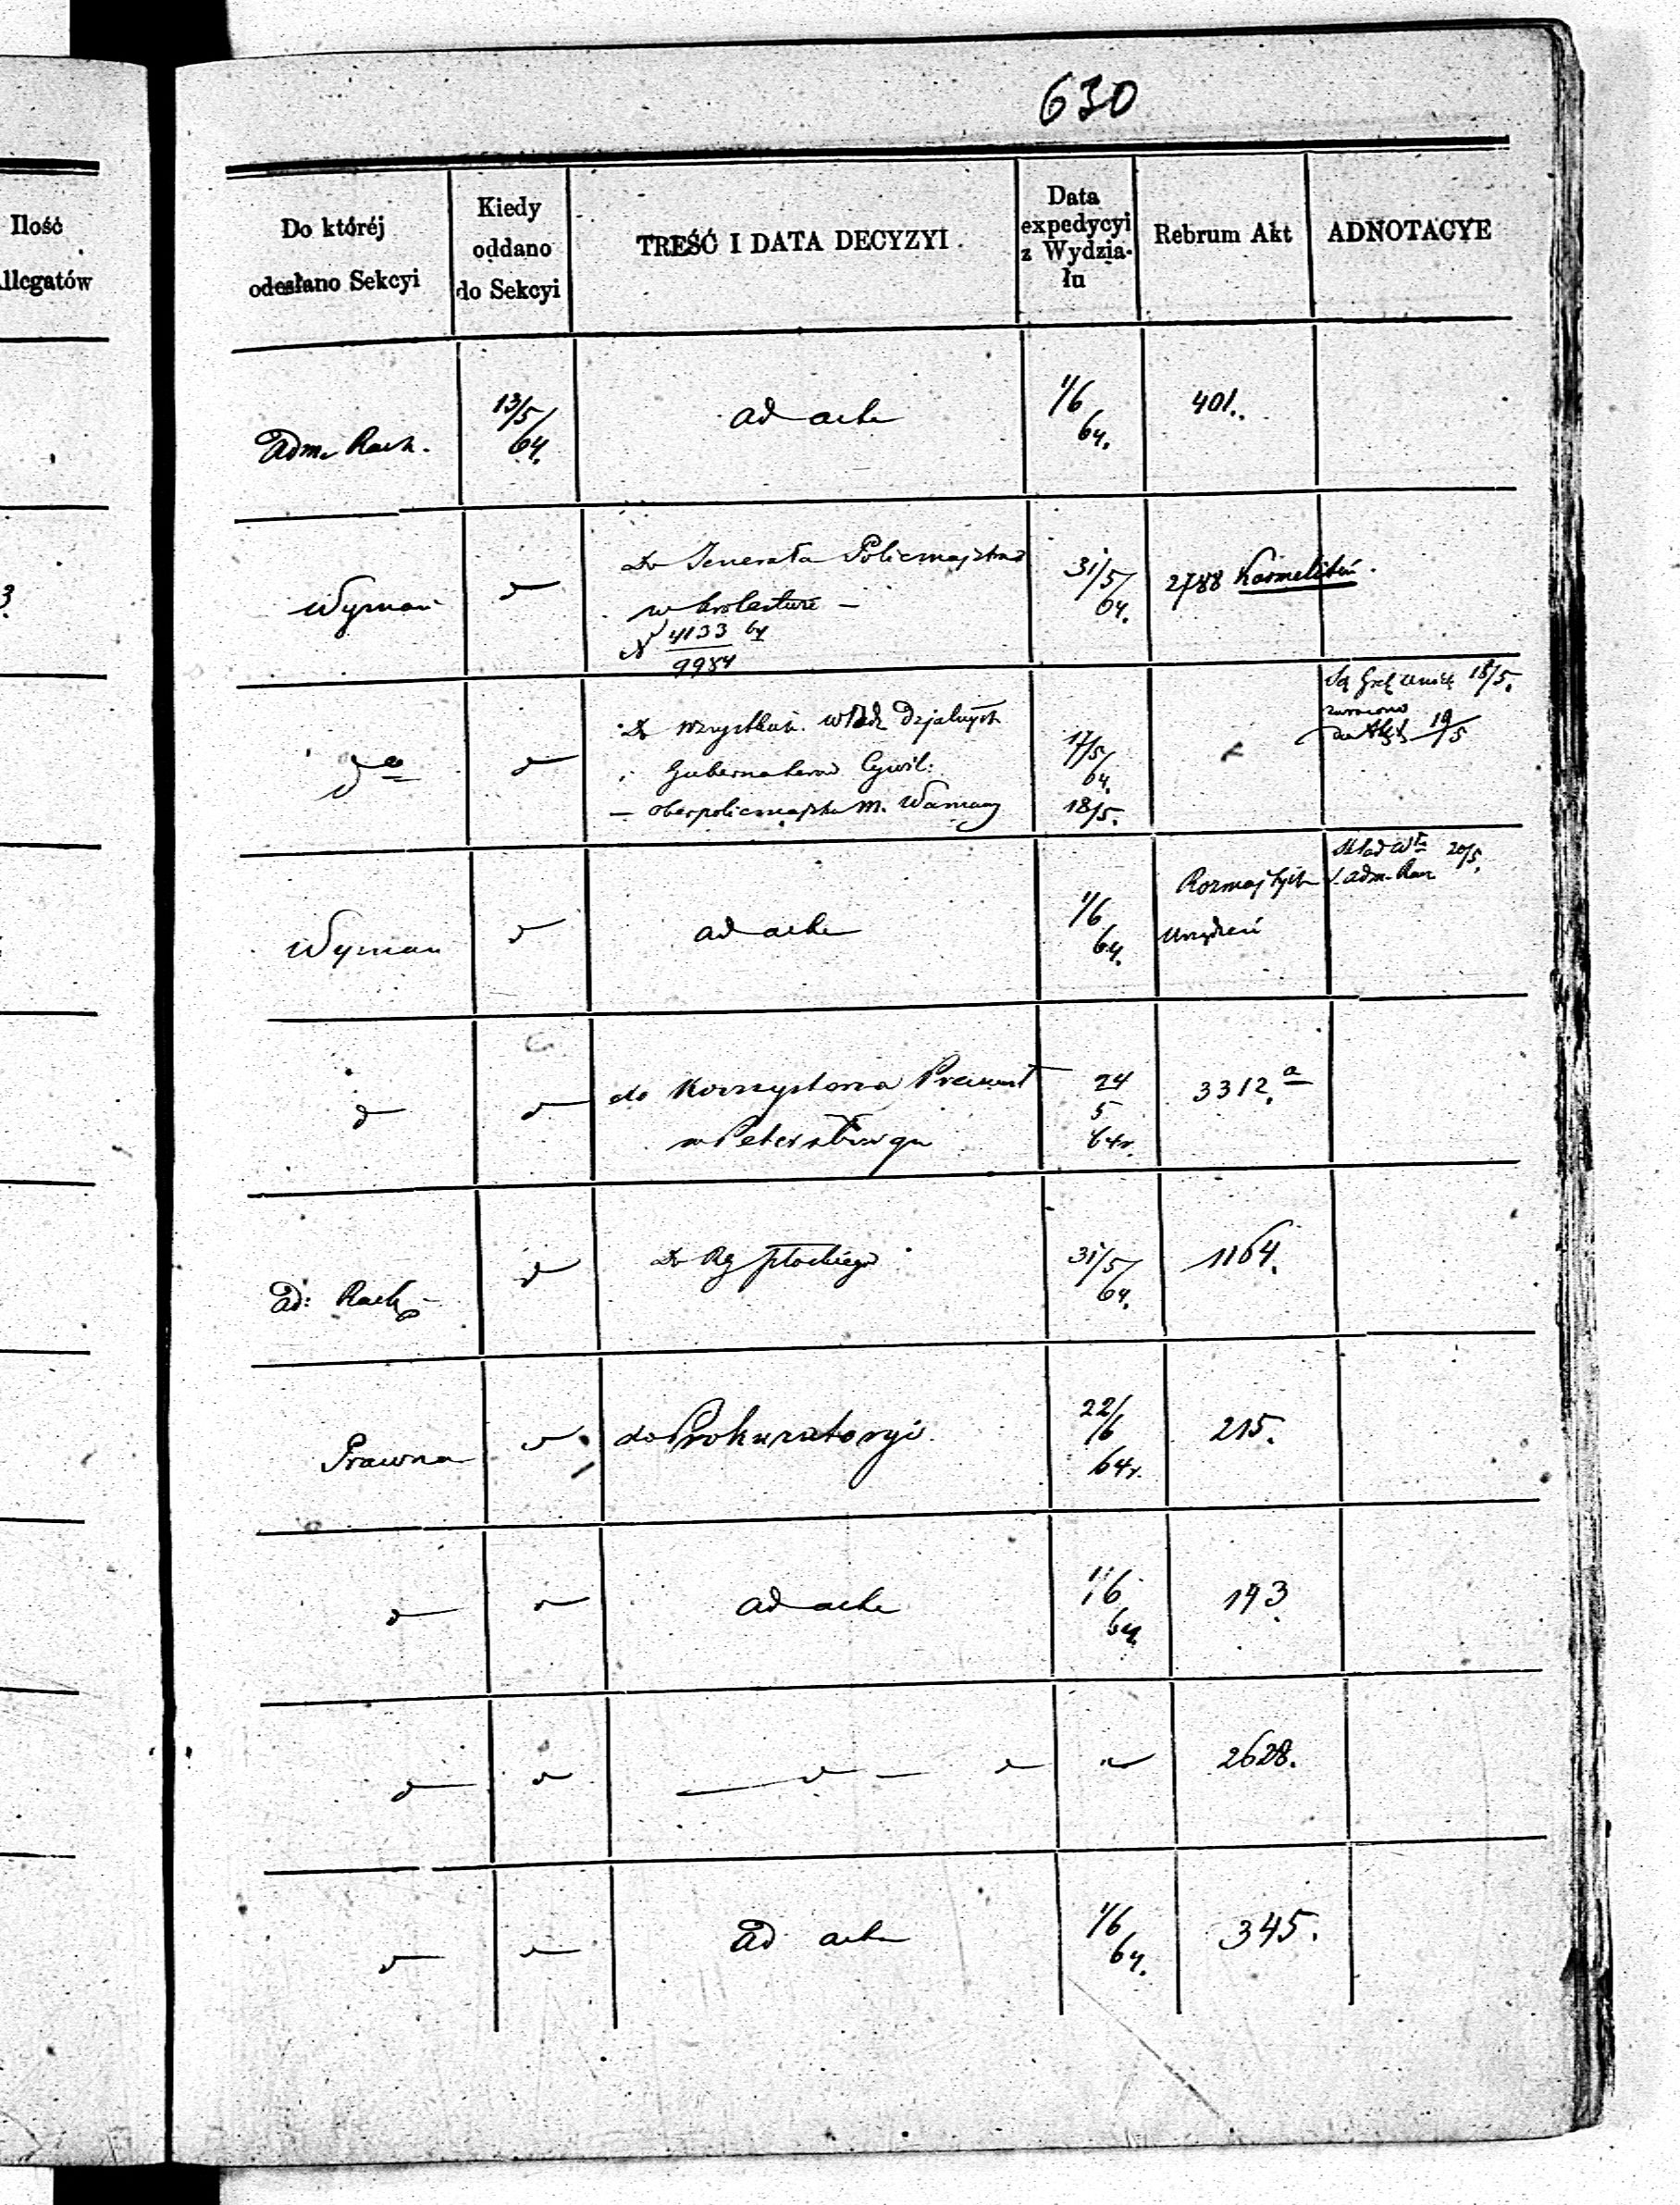 630
Ilość
llegatów
Do któréj
odesłano Sekcyi
Kiedy
oddano
do Sekcyi
TREŚĆ I DATA DECYZYI.
Data
expedycyi
z Wydzia-
łu
Rebrum Akt
ADNOTACYE
Adm. Rach.
13/5
64.
ad acta
1/6
64.
401.
Wyznań
Do Jenerała Policmajstra
w Królestwie —
N 4133 64
9984
31/5
64.
2788 Karmelitów.
3
Do wszystkich Władz Dzjalnych
Gubernatorów Cywil:
— Oberpolicmajstra m. Warszawy
17/5
64.
18/5.
18/5.
zwrócono
19/5
Wyznań
ad acta
1/6
64.
Rozmajtych
Urządzeń
20/5.
Adm.
do Konsystorza
w Petersburgu
24
5
64r.
3312. a
Ad: Rach.
Do Rg Płockiego
31/5
64.
1164.
Prawna
do Prokuratoryi.
22/6
64r.
215.
ad acta
1/6
64.
193
2628.
ad acta
1/6
64.
345.